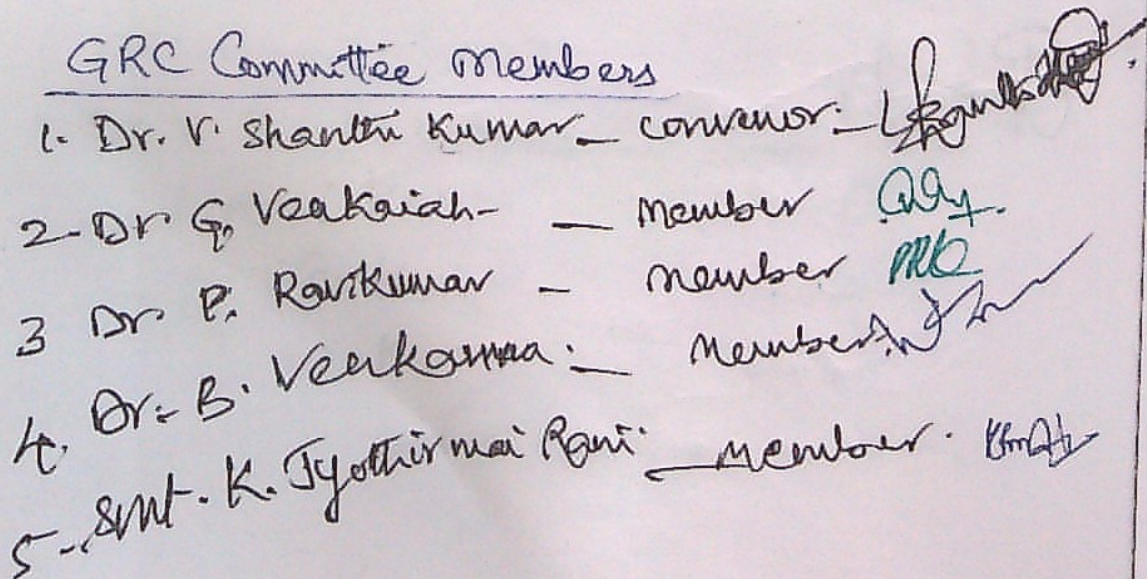 GRC Committee Members
1. Dr. V. Shanthi Kumar - convenor:-
2. Dr G. Venkaiah- - Member
3 Dr. P. Ravikumar - Member
4. Dr. B. Venkanna: - Member
5-. Smt. K. Jyothirmai Rani - Member.